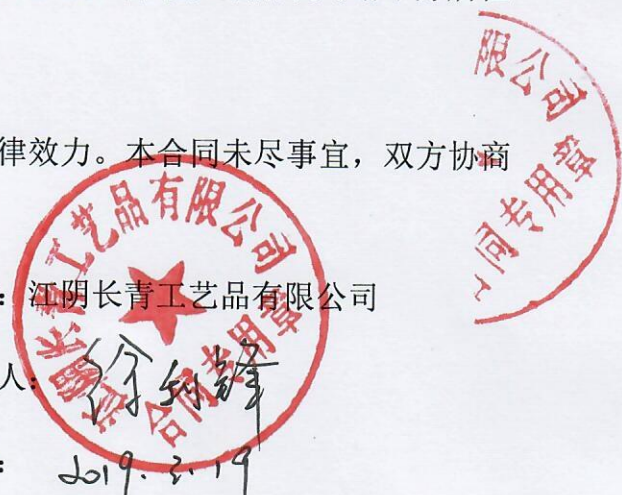 律效力。本合同未尽事宜，双方协商
：江阴长青工艺品有限公司
人：徐利锋
：2019.3.19
长青工艺品有限公司
合同专用章
限公司
同专用章